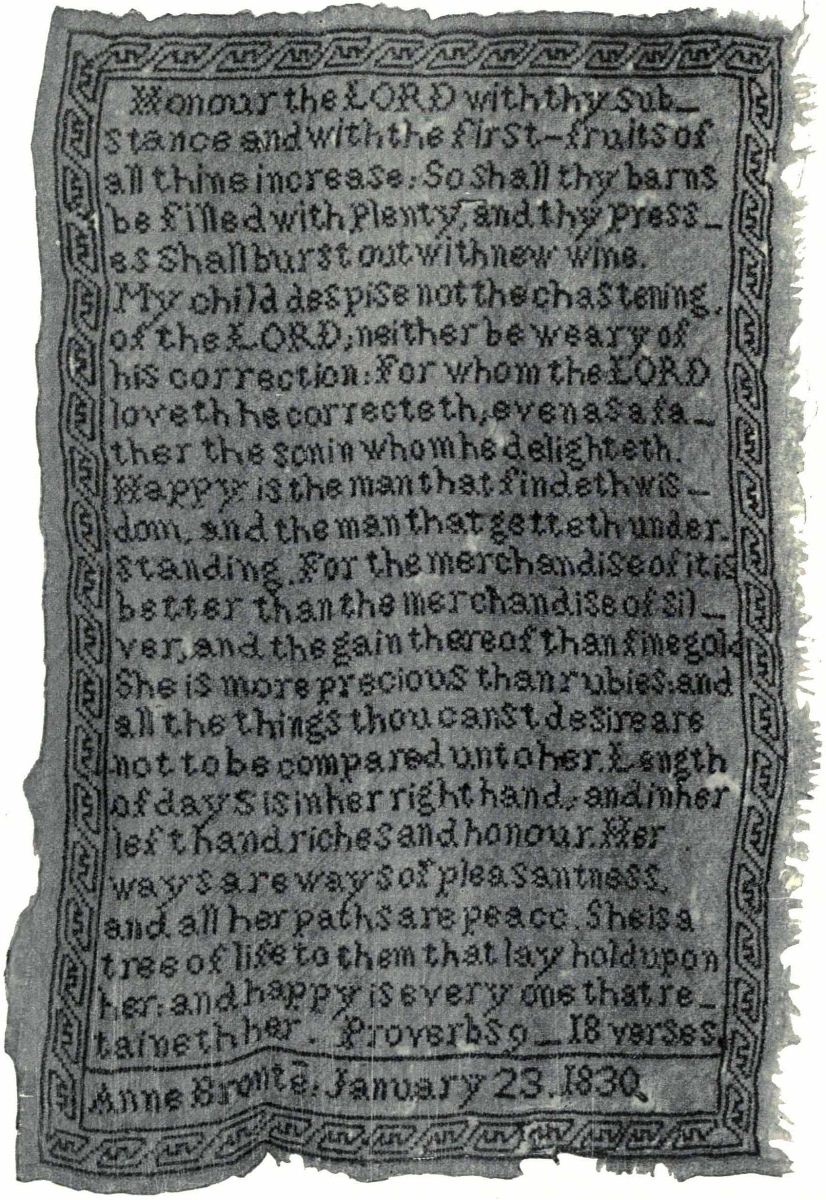 Honour the LORD with thy sub_
stance and with the first-fruits of
all thine increase: So shall thy barns
be filled with plenty, and thy press_
es shall burst out with new wine.
My child despise not the chastening,
of the LORD; neither be weary of
his correction: For whom the LORD
loveth he correcteth; even as a fa_
ther the son in whom he delighteth.
Happy is the man that findeth wis_
dom, and the man that getteth under_
standing. For the merchandise of it is
better than the merchandise of sil_
ver, and the gain thereof than fine gold
She is more precious than rubies: and
all the things thou canst desire are
not to be compared unto her. Length
of days is in her right hand; and in her
left hand riches and honour. Her
ways are ways of pleasantness,
and all her paths are peace. She is a
tree of life to them that lay hold upon
her: and happy is every one that re_
taineth her. Proverbs 9_18 verses.
Anne Brontë: January 23. 1830.